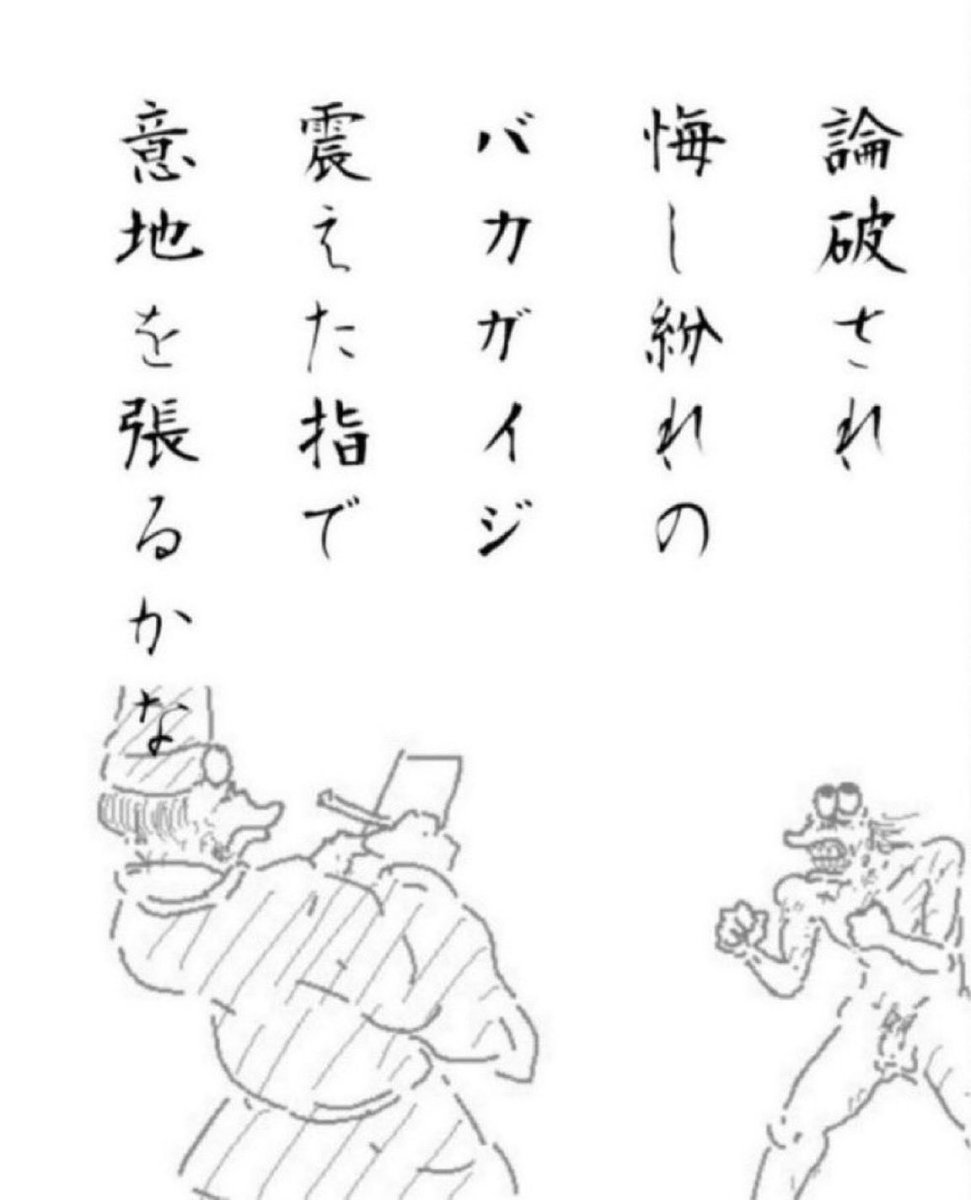 論破され
悔し紛れの
バカガイジ
震えた指で
意地を張るかな